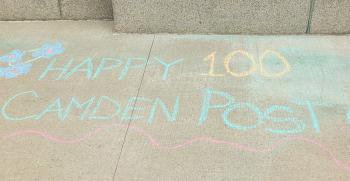 HAPPY 100
CAMDEN POST